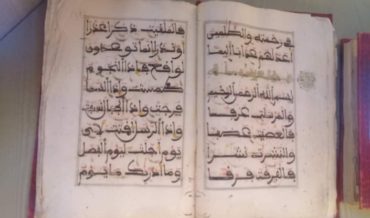 في رحمته والظلمين
أعد لهم عذابا أليما
بسم الله الرحمن الرحيم
والمرسلت عرفا
فالعصفت عصفا
والنشرت نشرا
فالفرقت فرقا
فالملقيت ذكرا عذرا
أو نذرا إنما توعدون
لواقع فإذا النجوم
طمست وإذا السماء
فرجت وإذا الجبال نسفت
وإذا الرسل أقتت لأي
يوم أجلت ليوم الفصل
وما أدريك ما يوم